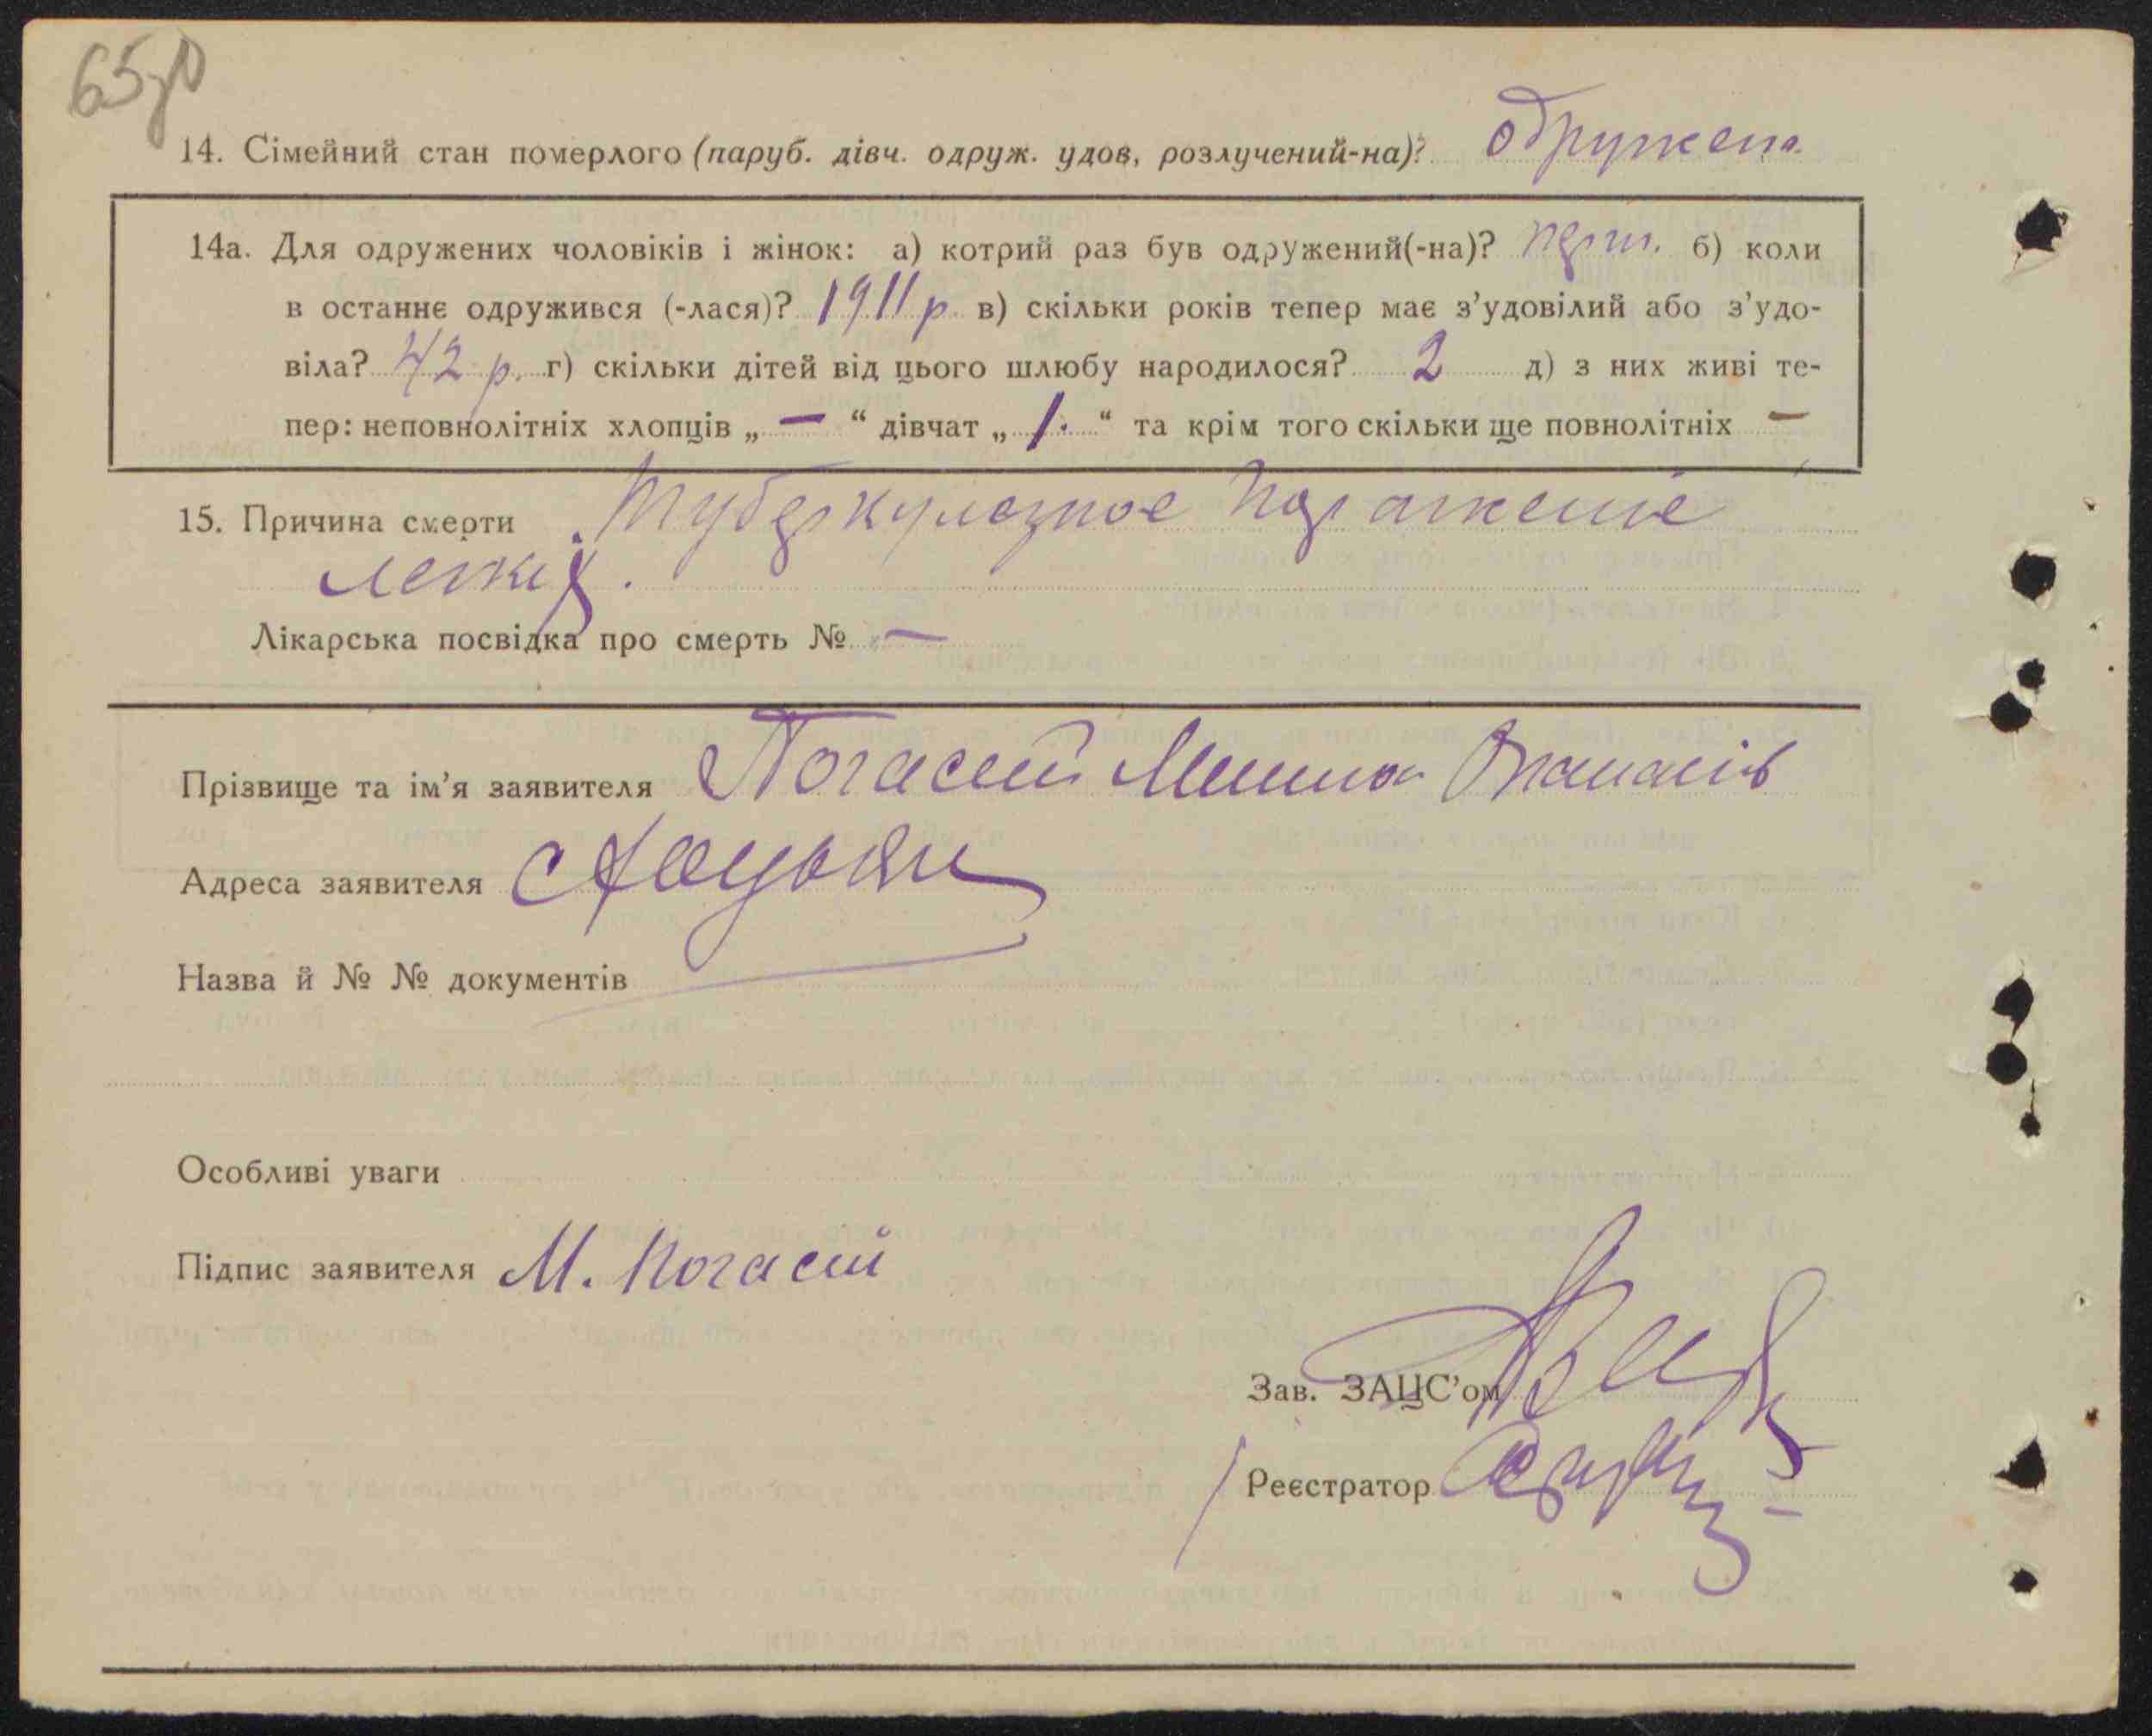 65зв
14. Сімейний стан померлого (паруб. дівч. одруж. удов, розлучений-на)? одружена
14а. Для одружених чоловіків і жінок: а) котрий раз був одружений(-на)? перш. б) коли
в останнє одружився (-лася)? 1911 р. в) скільки років тепер має з’удовілий або з’удо-
віла? 42 р. г) скільки дітей від цього шлюбу народилося? 2 д) з них живі те-
пер: неповнолітніх хлопців „ — “ дівчат „ 1. “ та крім того скільки ще повнолітніх —
15. Причина смерти Туберкулезное Поражение
легких.
Лікарська посвідка про смерть № —
Прізвище та ім’я заявителя Погасій Опанасів
Адреса заявителя с
Назва й № № документів
Особливі уваги
Підпис заявителя М. Погасій
Зав. ЗАЦС’ом
Реєстратор